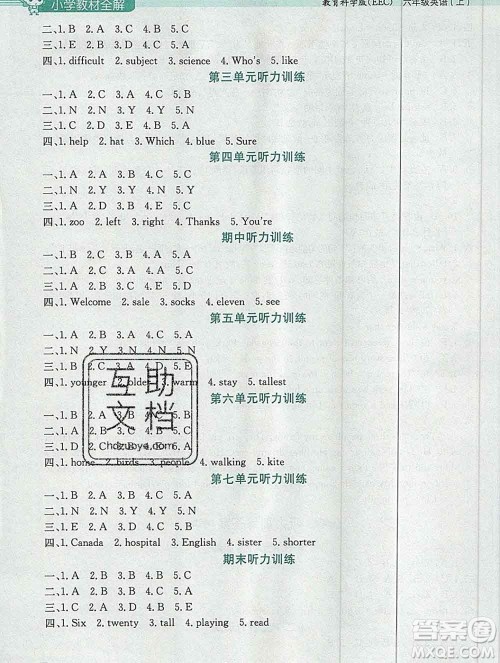 小学教材全解
教育科学版(EEC) 六年级英语(上)
二、1. B 2. A 3. C 4. A 5. B
三、1. C 2. A 3. D 4. B
四、1. difficult 2. subject 3. science 4. Who's 5. like
第三单元听力训练
一、1. B 2. C 3. A 4. C 5. A
二、1. N 2. Y 3. Y 4. Y 5. N
三、1. C 2. D 3. B 4. A
四、1. help 2. hat 3. Which 4. blue 5. Sure
第四单元听力训练
一、1. A 2. A 3. B 4. B 5. A
二、1. Y 2. N 3. Y 4. N 5. N
三、1. A 2. D 3. E 4. C 5. B
四、1. zoo 2. left 3. right 4. Thanks 5. You're
期中听力训练
一、1. B 2. C 3. A 4. C 5. A
二、1. N 2. N 3. Y 4. Y 5. Y
三、1. A 2. D 3. B 4. E 5. C
四、1. Welcome 2. sale 3. socks 4. eleven 5. see
第五单元听力训练
一、1. B 2. A 3. A 4. B 5. A
二、1. N 2. Y 3. N 4. N 5. N
三、1. D 2. A 3. 4. 5.
四、1. younger 2. older 3. warm 4. stay 5. tallest
第六单元听力训练
一、1. B 2. A 3. B 4. C 5. A
二、1. D 2. C 3. 4. 5. A
四、1. home 2. birds 3. people 4. walking 5. kite
第七单元听力训练
一、1. A 2. B 3. A 4. C 5. B
二、1. N 2. Y 3. Y 4. N 5. Y
三、1. C 2. B 3. D 4. A
四、1. Canada 2. hospital 3. English 4. sister 5. shorter
期末听力训练
一、1. A 2. B 3. B 4. C 5. B
二、1. B 2. A 3. A 4. B 5. B
三、1. C 2. D 3. B 4. E 5. A
四、1. Six 2. twenty 3. tall 4. playing 5. read
互助
文档
chdzuoye.com
作业帮
MXQE.COM